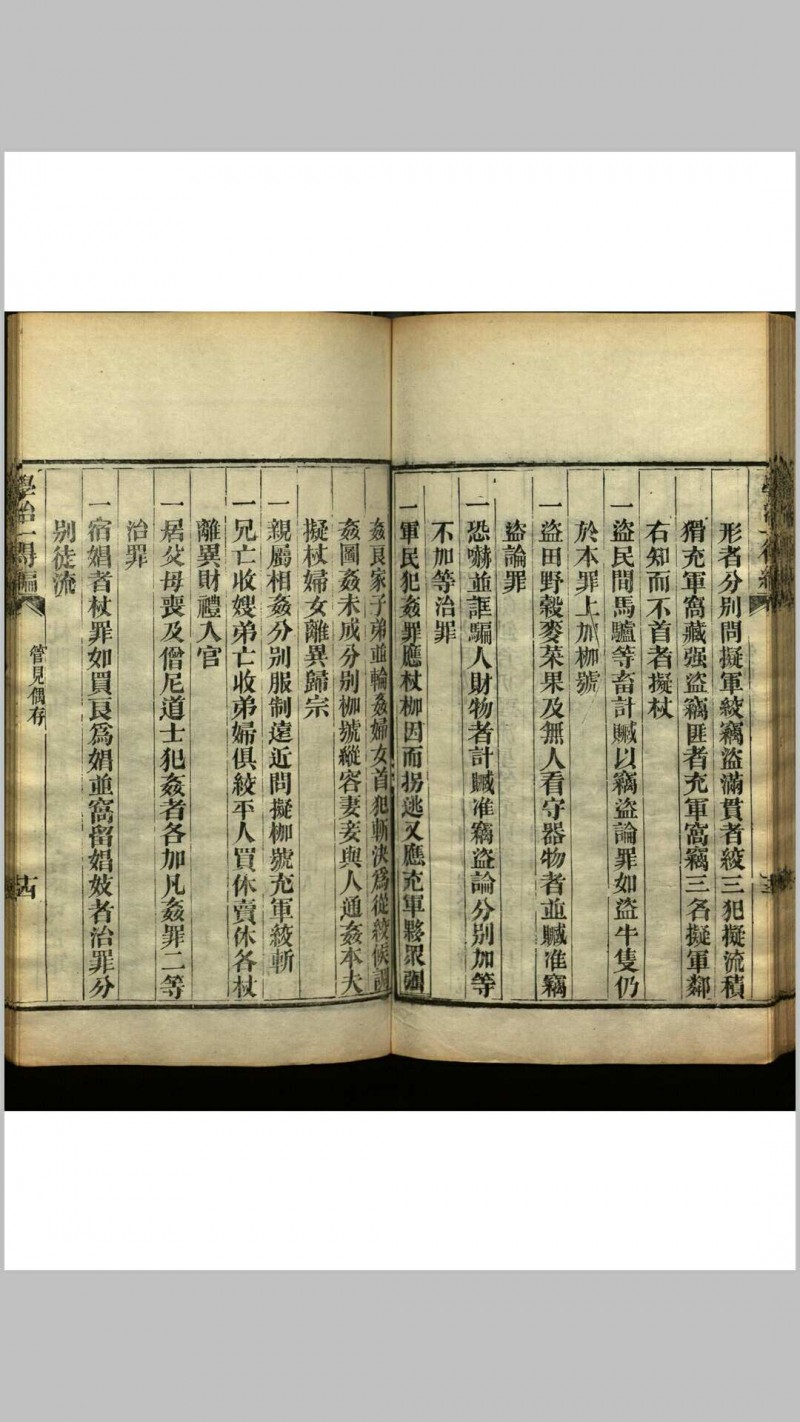 形者分別問擬軍絞竊盜滿貫者絞三犯擬流積
猾充軍窩藏强盜竊匪者充軍窩竊三名擬軍鄰
右知而不首者擬杖
一盜民間馬驢等畜計贓以竊盜論罪如盜牛隻仍
於本罪上加枷號
一盜田野穀麥菜果及無人看守器物者並贓准竊
盜論罪
一恐嚇並誆騙人財物者計贓准竊盜論分別加等
不加等治罪
一軍民犯姦罪應杖枷因而拐逃又應充軍夥眾强
姦良家子弟並輪姦婦女首犯斬決爲從絞候調
姦圖姦未成分別枷號縱容妻妾與人通姦本夫
擬杖婦女離異歸宗
一親屬相姦分別服制遠近問擬枷號充軍絞斬
一兄亡收嫂弟亡收弟婦俱絞平人買休賣休各杖
離異財禮入官
一居父母喪及僧尼道士犯姦者各加凡姦罪二等
治罪
一宿娼者杖罪如買良爲娼並窩留娼妓者治罪分
別徒流
學治一得編
管見偶存